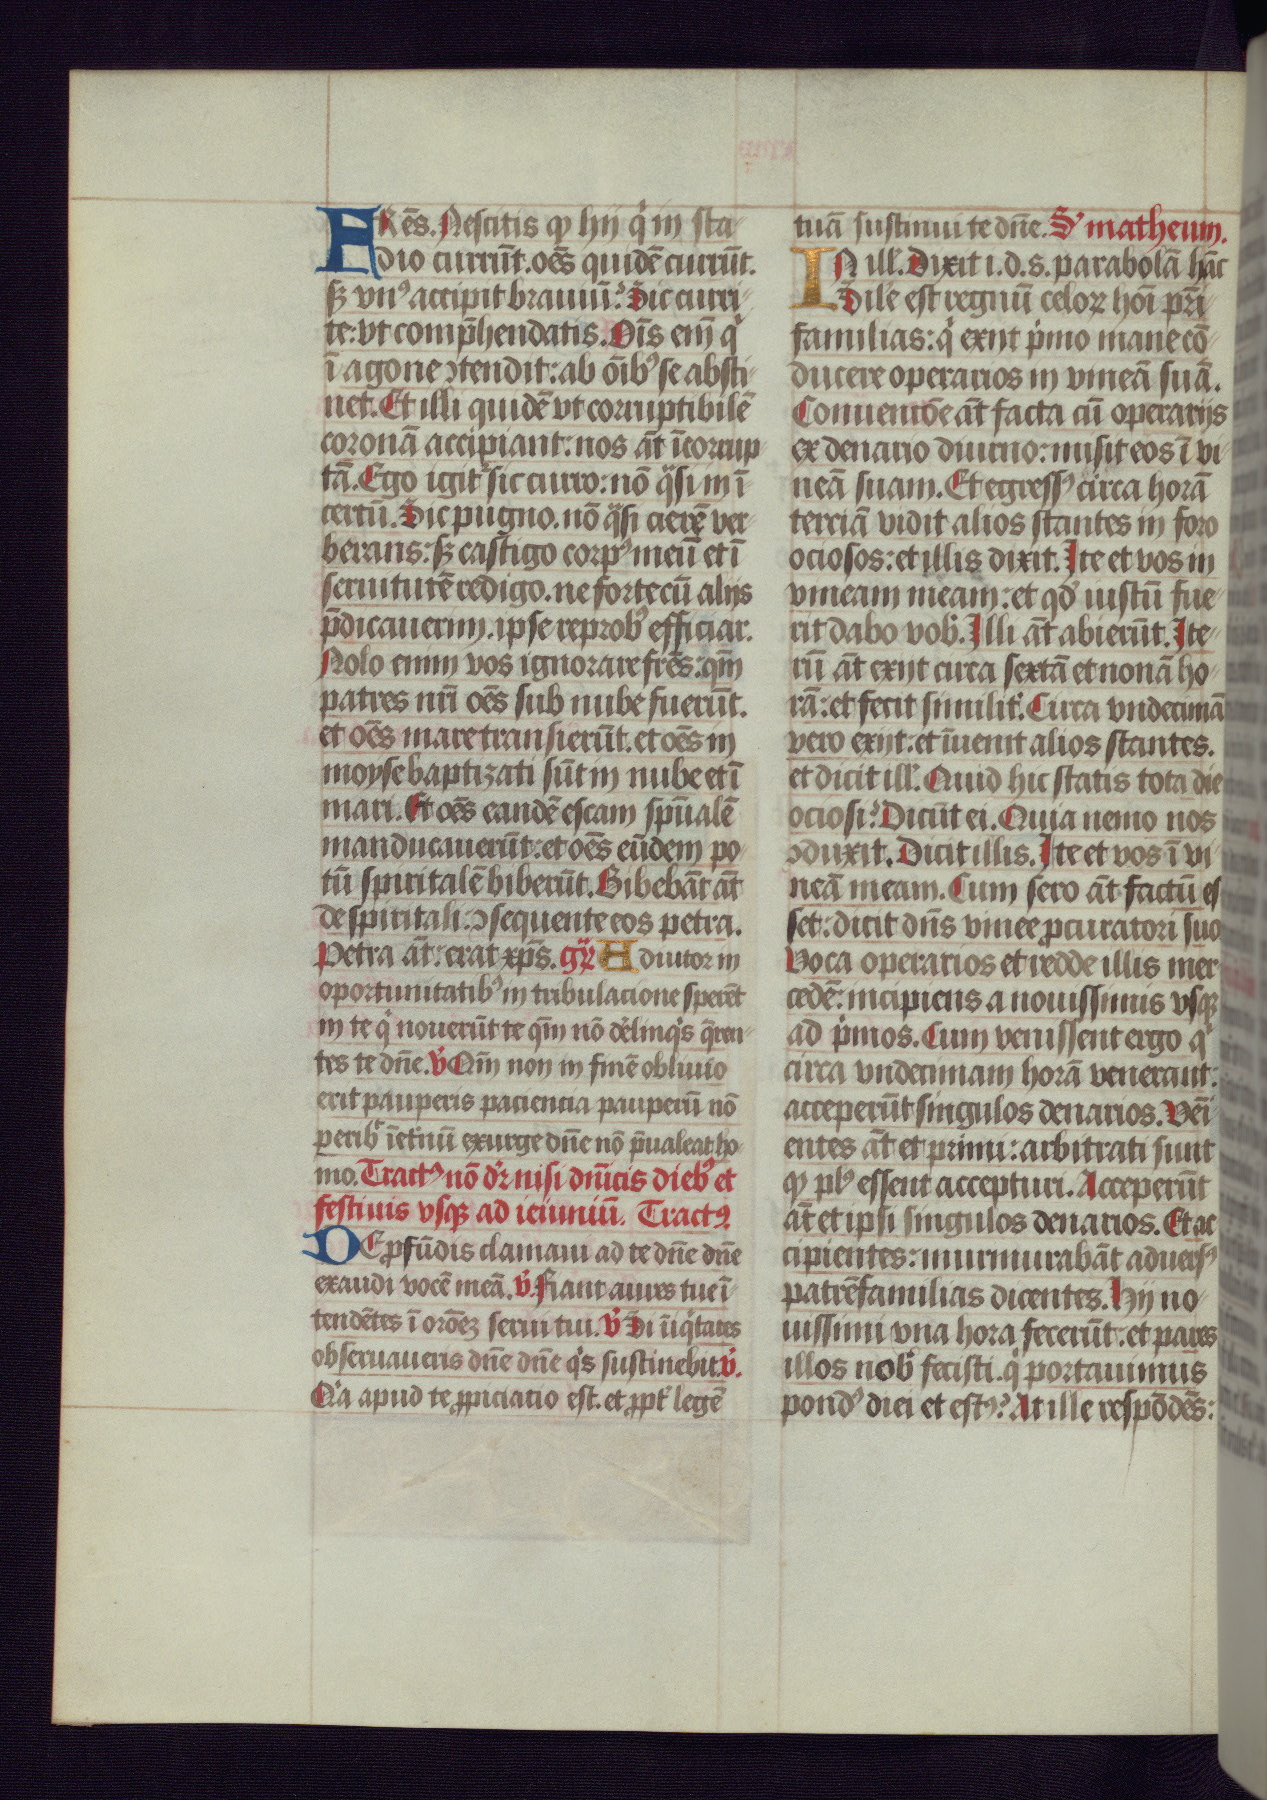 FRēs. Nescitis qꝫ hij qͥ in sta-
dio currūt. oēs quidē currūt.
sꝫ vnꝰ accipit brauiū? Sic curri-
te: vt comp̄hendatis. Oīs eiṁ qͥ
ī agone ꝯtendit: ab oībꝰ se absti-
net. Et illi quidē vt corruptibilē
coronā accipiant: nos āt īcorrup-
tā. Ego igitͬ sic curro: nō qͣsi in ī
certū. Sic pugno. nō qͣsi aerē ver-
berans: sꝫ castigo corpꝰ meū et ī
seruitutē redigo. ne forte cū alijs
p̄dicauerim. ipse reprobꝰ efficiar.
Nolo enim vos ignorare frēs: qm̄
patres nr̄i oēs sub nube fuerūt.
et oēs mare transierūt. et oēs in
moyse baptizati sūt in nube et ī
mari. Et oēs eandē escam spūalē
manducauerūt: et oēs eūdem po-
tū spiritalē biberūt. Bibebāt āt
de spiritali: ꝯsequente eos petra.
Petra āt: erat xp̄s. gͬꝛ Adiutor in
oportunitatibꝰ in tribulacione sperēt
in te qͥ nouerūt te qm̄ nō derlinqͥs q̄ren-
tes te dn̄e. v̾ Qm̄ non in finē obliuio
erit pauperis paciencia pauperū nō
peribͥ īet'nū exurge dn̄e nō p̄ualeat ho-
mo. Tractꝰ nō dr̄ nisi dn̄icis diebꝰ et
festiuis vsqꝫ ad ieiuniū. Tractꝰ
DE ꝓfūdis clamaui ad te dn̄e dn̄e
exaudi vocē meā. v̾. Fiant aures tue ī
tendētes ī orōeꝫ serui tui. v̾ Si īiqͥtates
obseruaueris dn̄e dn̄e qͥs sustinebit v̾.
Qͥa apud te ꝓpiciatio est. et ꝓpt' legē
tuā sustinui te dn̄e. S' matheum.
IN ill'. Dixit i. d. s. parabolā hāc
Sile est regnū celoꝝ hoī pr̄i-
familias: qͥ exijt p̍mo mane cō-
ducere operarios in vineā suā.
Conuentōe āt facta cū operarijs
ex denario diurno: misit eos ī vi-
neā suam. Et egressꝰ circa horā
terciā vidit alios stantes in foro
ociosos: et illis dixit. Ite et vos in
vineam meam: et qd' iustū fue-
rit dabo vob'. Illi āt abierūt. Ite-
rū āt exijt circa sextā et nonā ho-
rā: et fecit similit'. Circa vndecimā
vero exijt: et īuenit alios stantes.
et dicit ill'. Quid hic statis tota die
ociosi? Dicūt ei. Quia nemo nos
ꝯduxit. Dicit illis. Ite et vos ī vi-
neā meam. Cum sero āt factū es
set: dicit dn̄s vinee ꝓcuratori suo
Voca operarios et redde illis mer-
cedē: incipiens a nouissimis vsqꝫ
ad p̍mos. Cum venissent ergo qͥ
circa vndecimam horā venerant:
acceperūt singulos denarios. Veni-
entes āt et primi: arbitrati sunt
qꝫ plꝰ essent accepturi. Acceperūt
āt et ipsi singulos denarios. Et ac
cipientes: murmurabāt aduersꝰ
patrēfamilias dicentes. Hij no-
uissimi vna hora fecerūt: et pares
illos nob' fecisti. qͥ portauimus
pondꝰ diei et estꝰ? At ille respōdēs: